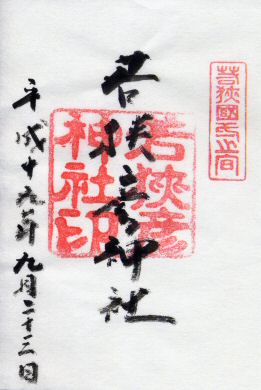 若狭國一宮
若狭彦神社
若狭彦神社印
平成十九年九月二十三日